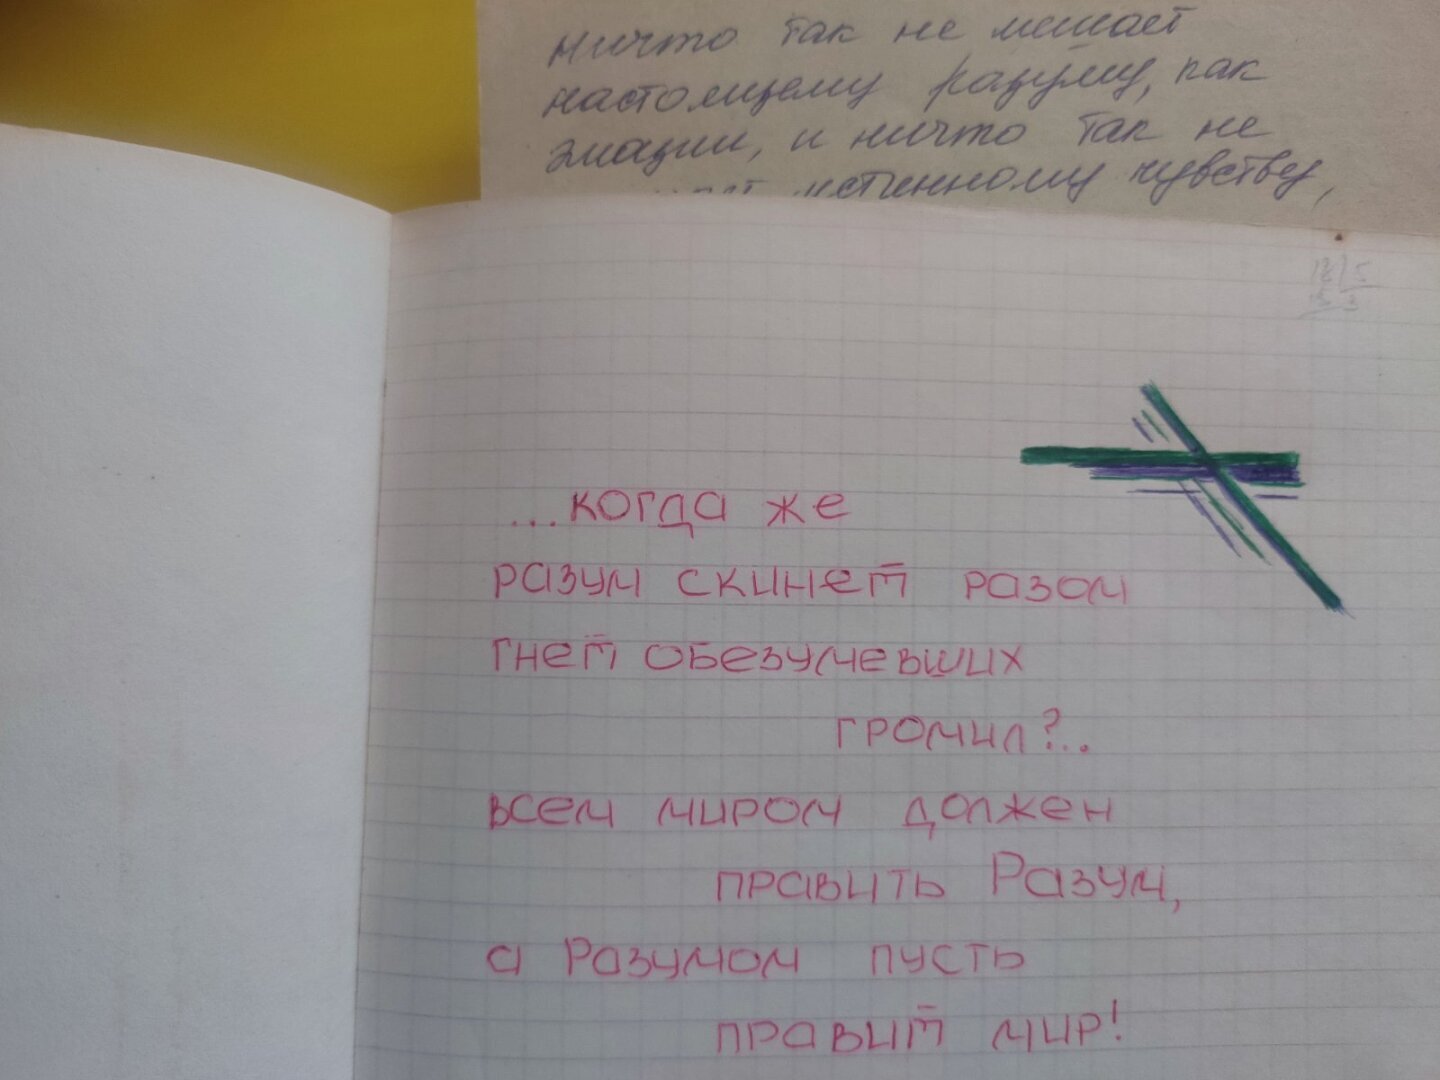 ничто так не мешает
настоящему разуму, как
эмоции, и ничто так не
истинному чувству,
...когда же
разум скинет разом
гнет обезумевших
громил?..
всем миром должен
править Разум,
а Разумом пусть
правит мир!